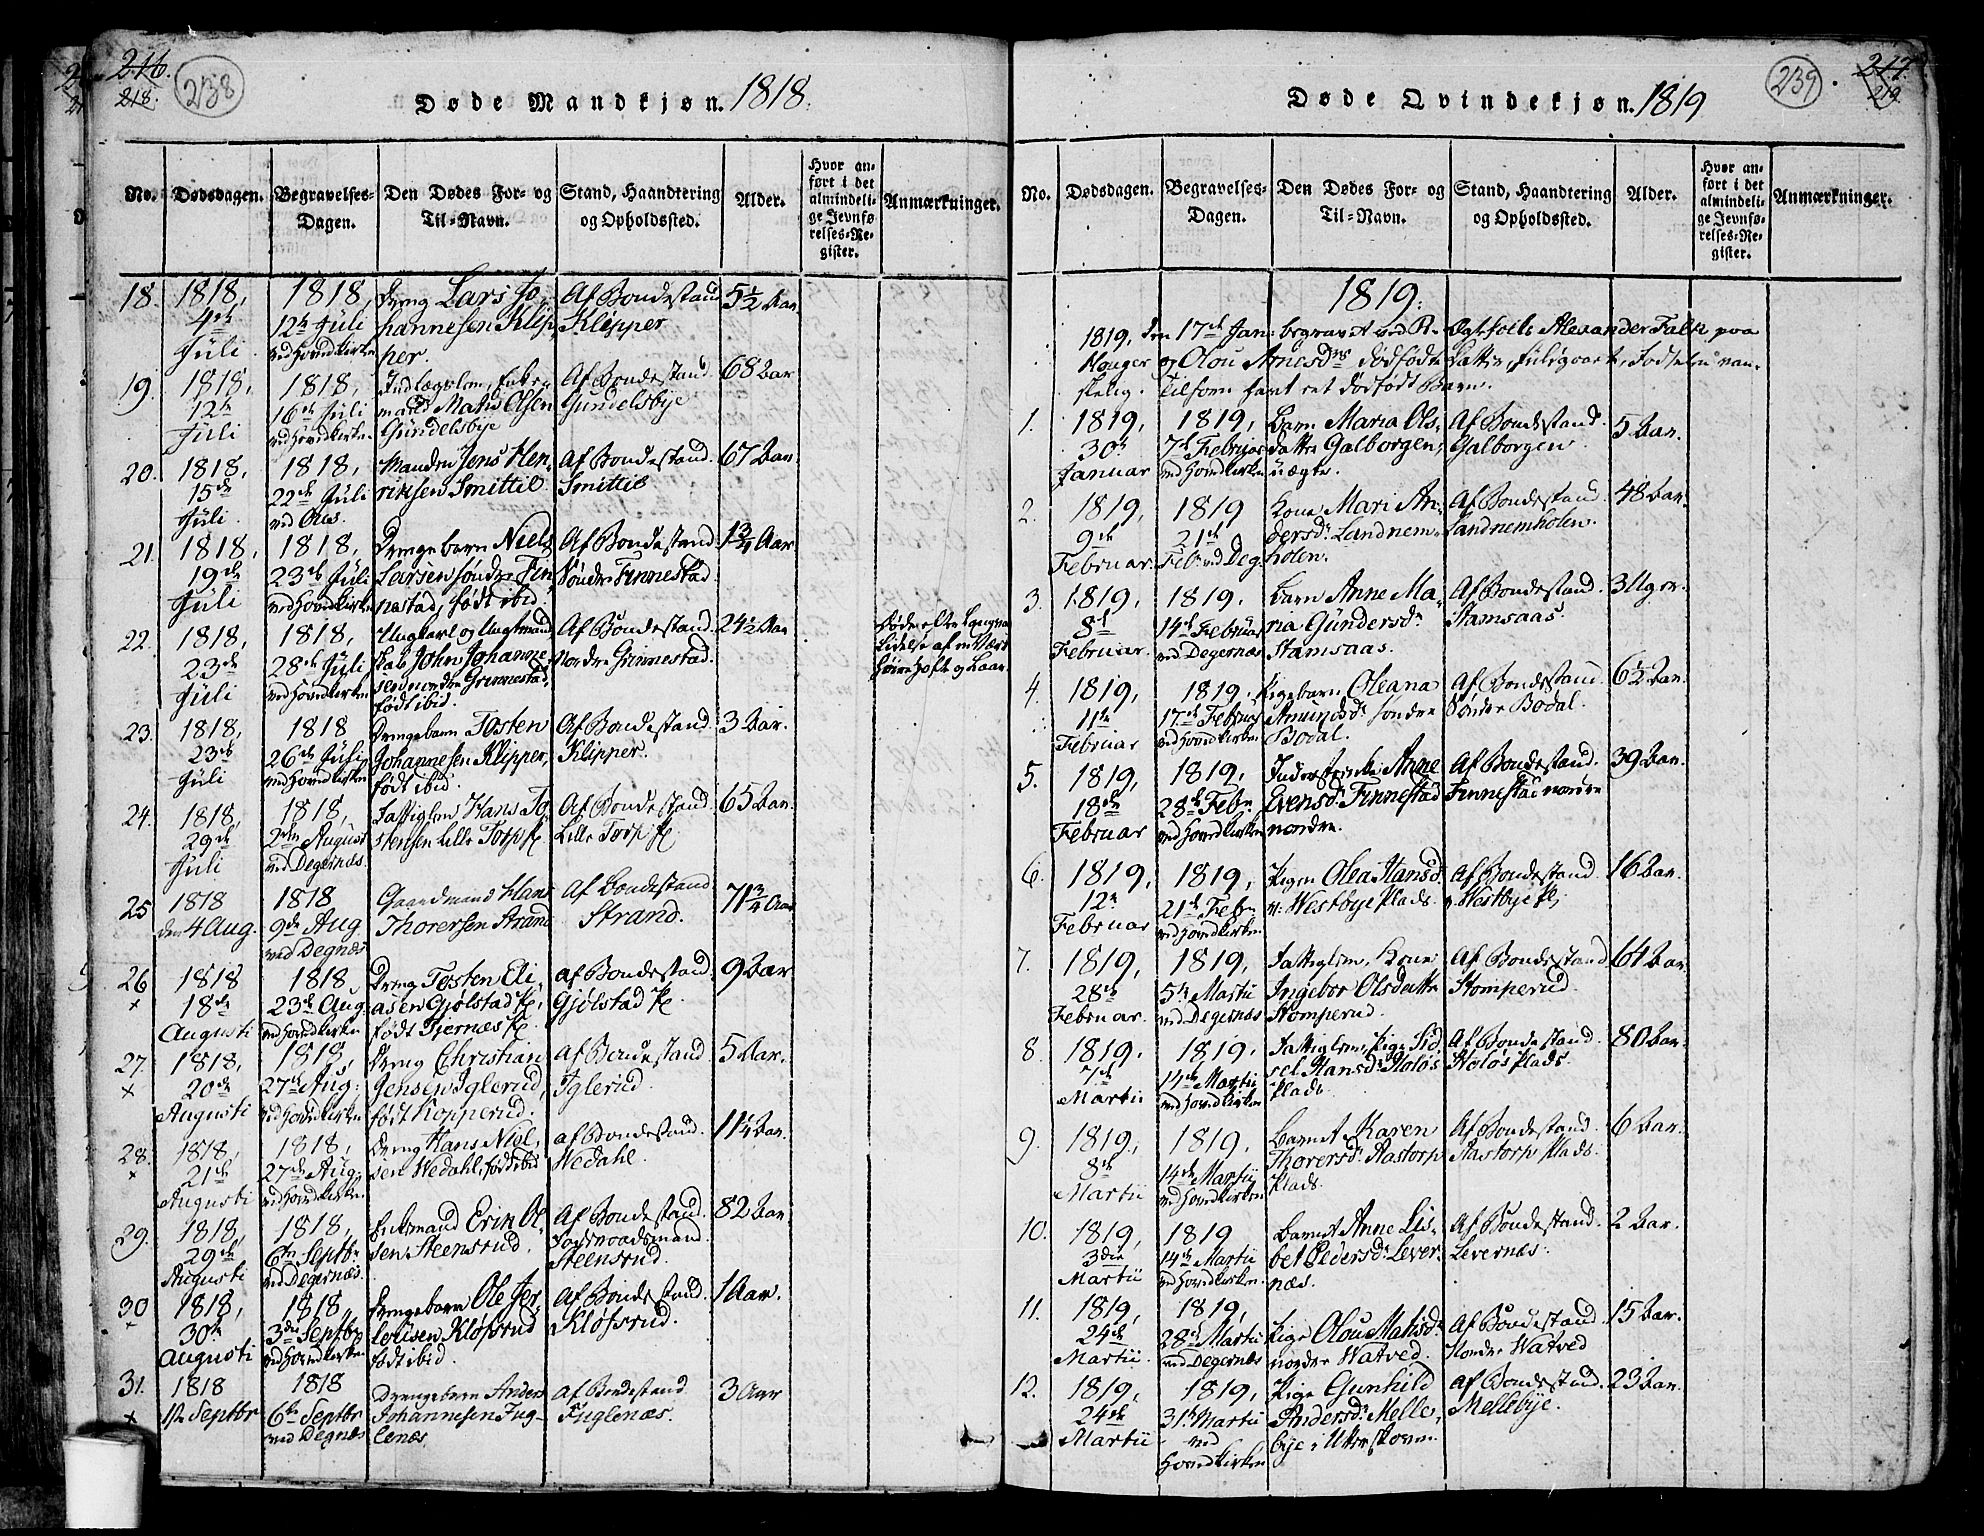 216.
218.
238
Døde Mandkjøn. 1818.
No.
Dødsdagen.
Begravelses-
Dagen.
Den Dødes For- og
Til-Navn.
Stand, Haandtering
og Opholdssted.
Alder.
Hvor an-
ført i det
almindeli-
ge Jevnfø-
relses-Re-
gister.
Anmærkninger.
18. 1818, 1818, Dreng Lars Jo- Af Bondestand 5½ Aar
4de 12te Juli hannesen Klip- Klepper
Juli. ved Hovedkirken per.
19. 1818, 1818, Af Bondestand. 68 Aar
12te 16de Juli mand Mats Olsen Gundelsbye
Juli ved Hovedkirken Gundelsbye
20. 1818, 1818, Manden Jens Hen- Af Bondestand. 67 Aar.
15de 22de Juli riksen Smittil Smittil
Juli. ved
21. 1818, 1818, Drengebarn Niels Af Bondestand. 1¾ Aar
19de 23de Juli Larsen søndre Fin- Søndre Finnestad.
Juli ved Hovedkirken nestad, født ibid.
22. 1818, 1818, Ungkarl og Af Bondestand. 24½ Aar
23de 28de Juli John Johanne- Nordre Grinnestad.
Juli ved Hovedkirken sen nordre Grinnestad,
født ibid.
Døde efter langvar
Lidelse af en
høire Hofte og Laar.
23. 1818, 1818 Drengebarn Tosten Af Bondestand. 3 Aar.
23de 26de Juli Johannesen Klepper, Klipper.
Juli ved Hovedkirken født ibid.
24. 1818, 1818, Fattiglem Hans To- Af Bondestand. 65 Aar.
29de 2den August stensen Lille Torp Lille Torp
Juli ved Degernæs.
25 1818 1818 Gaardmand Hans Af Bondestand 71¾ Aar
den 4 Aug. 9de Aug Thorersen Strand Strand.
ved Degnæs
26 1818 1818 Dreng Tosten Eli- af Bondestand. 9 Aar
× 18de 23de Aug. asen Gjølstad Gjølstad
Augusti ved Hovedkirken født Tjernæs
27. 1818, 1818, Dreng Christian Af Bondestand 5 Aar.
× 20de 27de Aug: Jensen Iglerud, Iglerud.
Augusti ved Hovedkirken født Kopperud.
28. 1818, 1818, Dreng Hans Niel- af Bondestand. 11¼ Aar.
× 21de 27de Aug: sen Wedahl, født ibid Wedahl.
Augusti ved Hovedkirken.
29. 1818, 1818, Enkemand Erin Ol- Af Bondestand. 82 Aar.
29de 6te Septbr sen Steensrud. Foderaadsmand
Augusti ved Degernæs. Steensrud.
30 1818, 1818, Drengebarn Ole Jer- Af Bondestand. 1 Aar.
× 30te 3die Septbr Kløfsrud Kløfsrud.
Augusti ved Hovedkirken født ibid.
31. 1818 1818 Drengebarn Anders af Bondestand 3 Aar
× Septbr 6te Septbr Johannesen Fug- Fuglenæs.
ved Degnæs lenæs.
239
217.
219
Døde Qvindekjøn. 1819
No.
Dødsdagen.
Begravelses-
Dagen.
Den Dødes For- og
Til-Navn.
Stand, Haandtering
og Opholdssted.
Alder.
Hvor an-
ført i det
almindeli-
ge Jevnfø-
relses-Re-
gister.
Anmærkninger.
1819.
1819, den 17de Jan: begravet ved Alexander Falk paa
og Olou Arnesdrs dødfødte Datter, Fødselen van-
skelig. Tilforn havt et dødfødt Barn.
1. 1819, 1819, Barn Maria Ols- Af Bondestand. 5 Aar.
30te 7de Februar datter Galborgen, Galborgen.
Januar ved Hovedkirken uægte.
2. 1819, 1819 Kone Mari An- Af Bondestand. 48 Aar.
9de 21de dersdr Landnem- Landnemholen.
Februar. Feb: ved Deg holen.
3. 1819, 1819. Barn Anne Ma- Af Bondestand. 3 Uger.
8de 14de Februar ria Gundersdr Stamsaas.
Februar. ved Degernæs Stamsaas.
4. 1819, 1819. Pigebarn Oleana Af Bondestand. 6½ Aar.
11te 17de Februar Amundsdr søndre Sønder Bodal.
Februar ved Hovedkirken Bodal.
5. 1819, 1819. Anne Af Bondestand. 39 Aar.
18de 28de Febr. Evensdr Finnestad Finnestad nordre
Februar ved Hovedkirken nordre.
6. 1819, 1819, Pigen Olea Hansd. Af Bondestand. 16 Aar.
12te 21de Febr. v: Westbye Plads. v: Westbye Pl,
Februar ved Hovedkirken.
7. 1819, 1819, Fattiglem, Kone Af Bondestand 64 Aar
28de 5te Martii Ingebor Olsdatter Stomperud.
Februar. ved Degernæs Stomperud.
8. 1819. 1819. Fattiglem, Pige Sid- Af Bondestand. 80 Aar.
7de 14de Martii sel Hansdr Holøs Holøs Plads.
Martii ved Hovedkirken Plads.
9. 1819, 1819. Barnet Karen Af Bondestand. 6 Aar.
8de 14de Martii Thorersdr Aastorp Aastorp Plads.
Martii ved Hovedkirken Plads.
10. 1819, 1819 Barnet Anne Lis- Af Bondestand. 2 Aar.
3die 14de Martii bet Pedersdr Lever- Levernæs.
Martii ved Hovedkirken. næs.
11. 1819, 1819, Pige Olou Matisdr Af Bondestand. 15 Aar.
24de 28de Martii nordre Watved. Nordre Watved
Martii. ved Degernæs
12. 1819, 1819, Pige Gunhild af Bondestand. 23 Aar.
24de 31te Martii Andersdr Melle- Mellebye.
Martii ved bye i
Hovedkirken